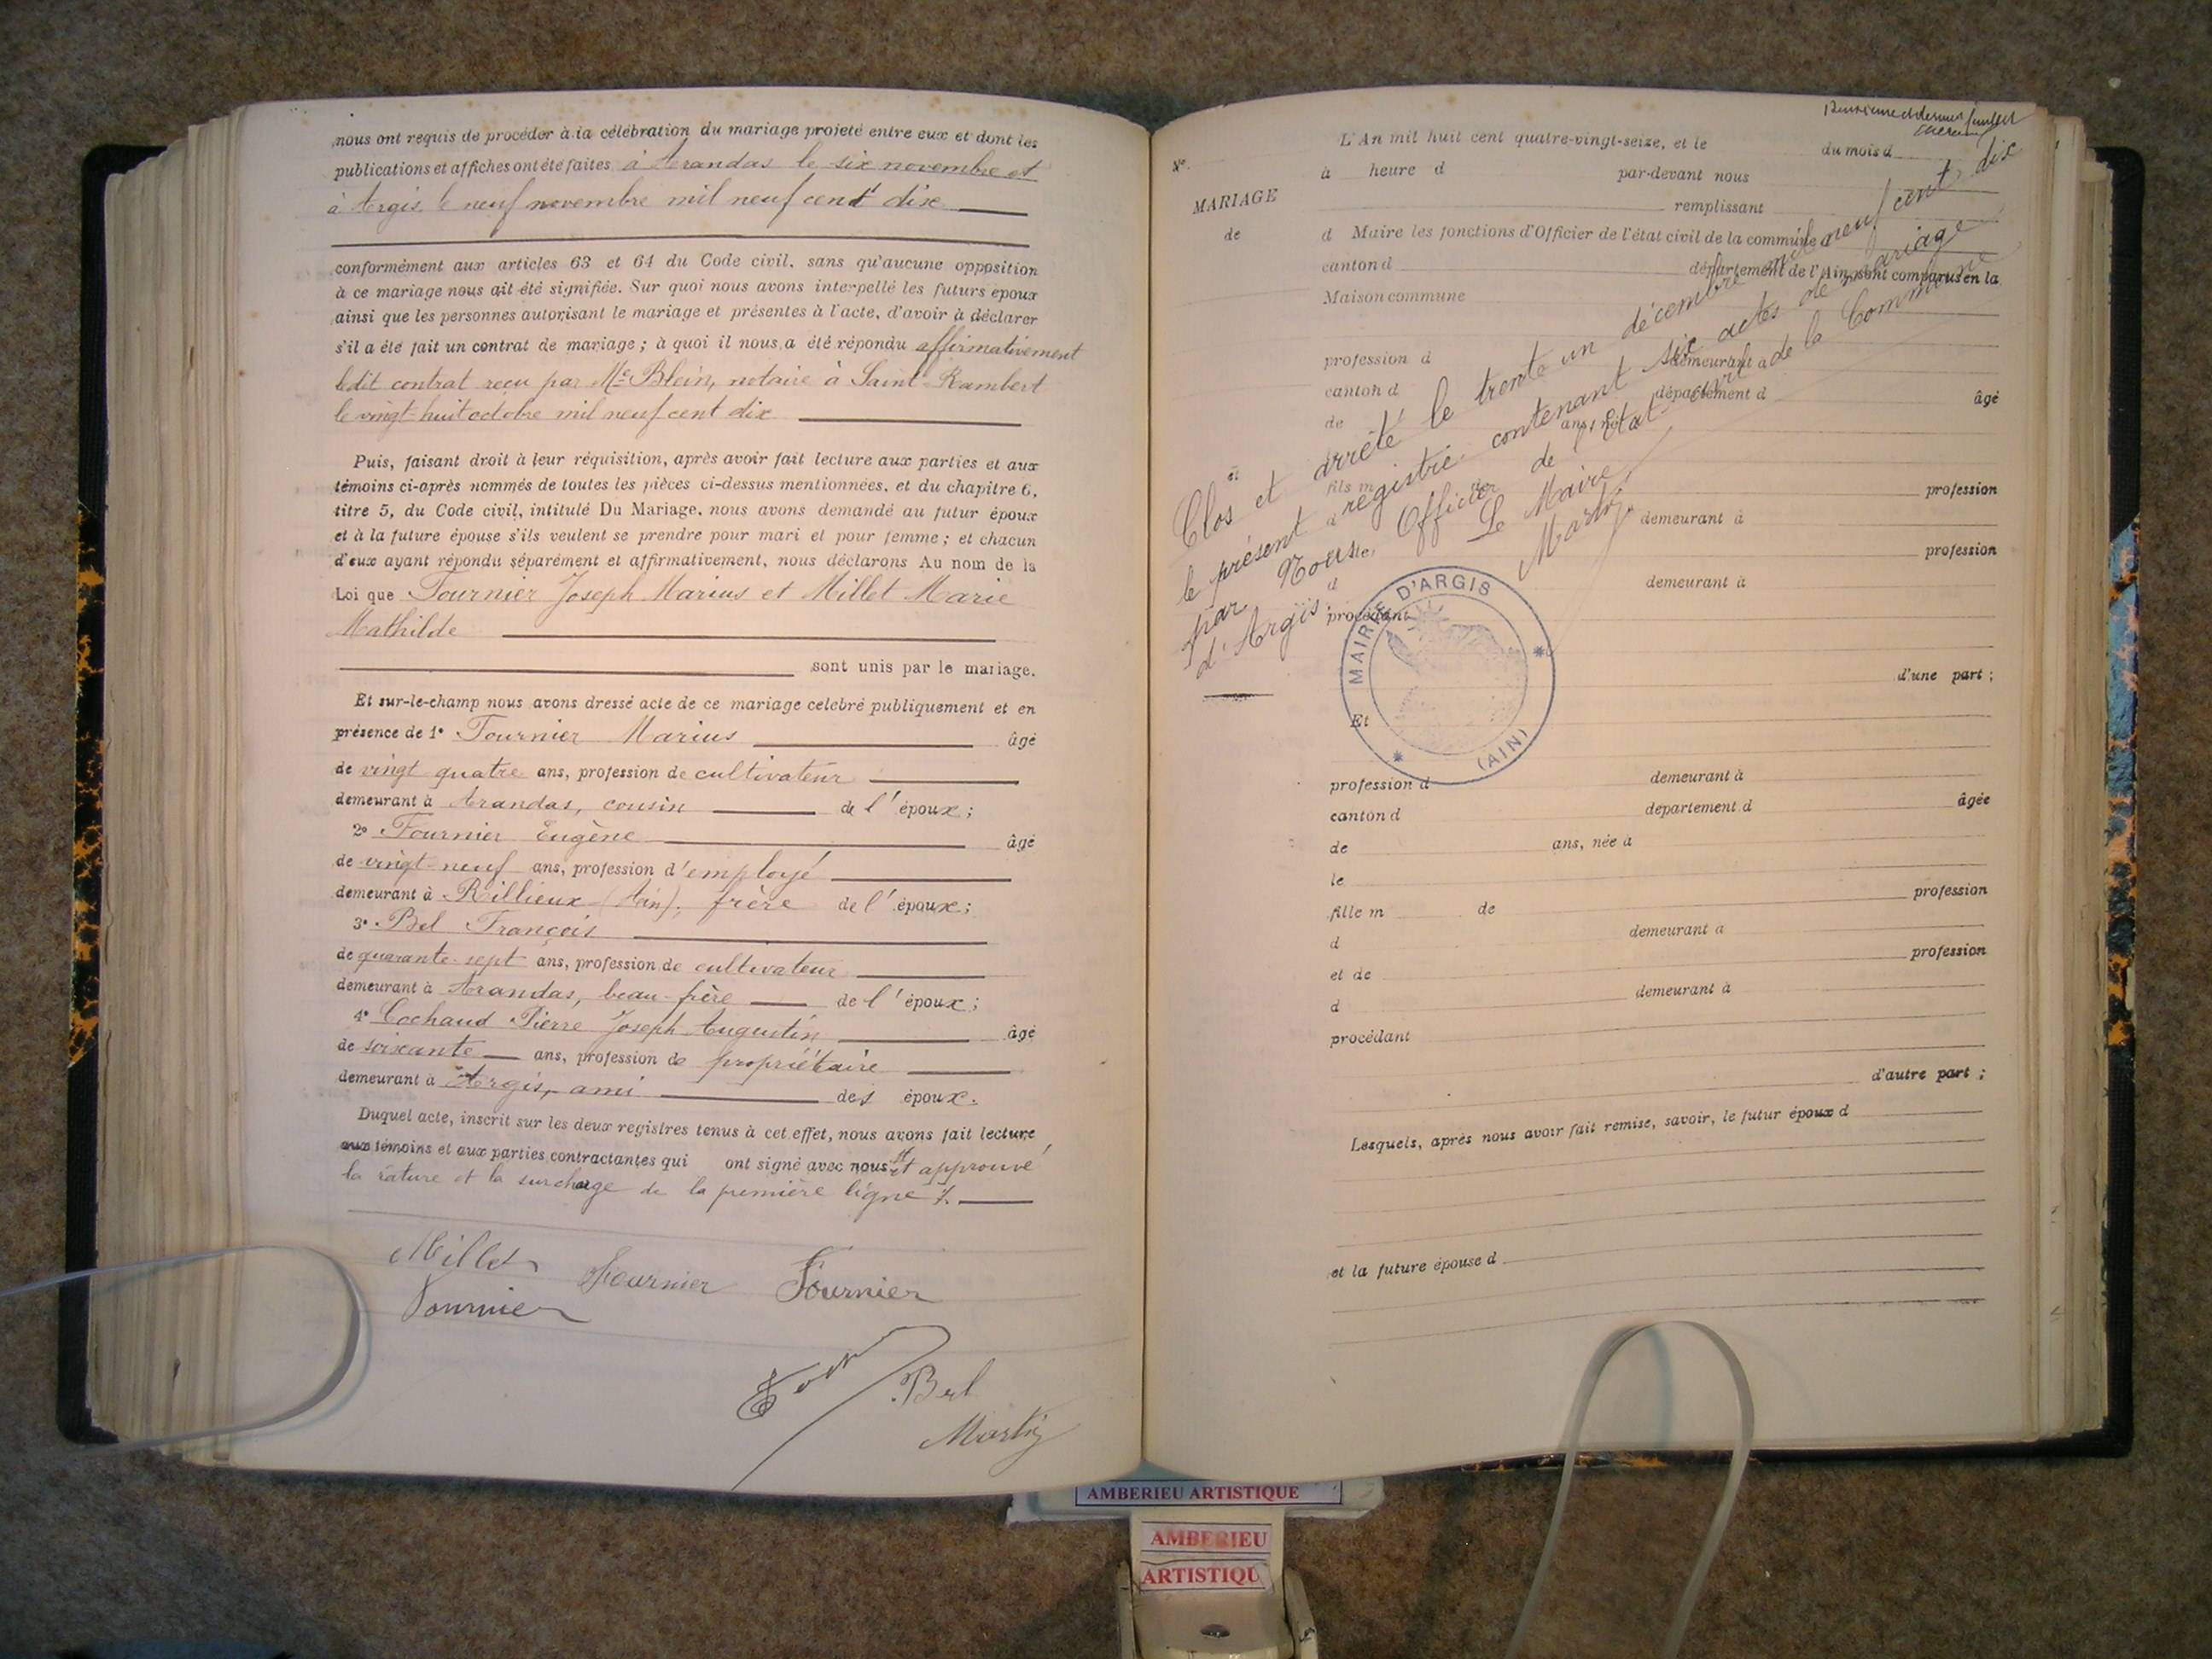 nous ont requis de procéder à la célébration du mariage projeté entre eux et dont les
publications et affiches ont été faites à Arandas le six novembre et
à Argis le neuf novembre mil neuf cent dix
conformément aux articles 63 et 64 du Code civil, sans qu'aucune opposition
à ce mariage nous ait été signifiée. Sur quoi nous avons interpellé les futurs époux
ainsi que les personnes autorisant le mariage et présentes à l'acte, d'avoir à déclarer
s'il a été fait un contrat de mariage ; à quoi il nous a été répondu affirmativement
ledit contrat reçu par Me Blein, notaire à Saint-Rambert
le vingt-huit octobre mil neuf cent dix
Puis, faisant droit à leur réquisition, après avoir fait lecture aux parties et aux
témoins ci-après nommés de toutes les pièces ci-dessus mentionnées, et du chapitre 6,
titre 5, du Code civil, intitulé Du Mariage, nous avons demandé au futur époux
et à la future épouse s'ils veulent se prendre pour mari et pour femme ; et chacun
d'eux ayant répondu séparément et affirmativement, nous déclarons Au nom de la
Loi que Fournier Joseph Marius et Millet Marie
Mathilde
sont unis par le mariage.
Et sur-le-champ nous avons dressé acte de ce mariage célébré publiquement et en
présence de 1° Fournier Marius âgé
de vingt quatre ans, profession de cultivateur
demeurant à Arandas, cousin de l'époux ;
2° Fournier Eugène âgé
de vingt-neuf ans, profession d'employé
demeurant à Rillieux (Ain), frère de l'époux ;
3° Bel François
de quarante-sept ans, profession de cultivateur
demeurant à Arandas, beau-frère de l'époux ;
4° Cochaud Pierre Joseph Augustin âgé
de soixante ans, profession de propriétaire
demeurant à Argis, ami des époux.
Duquel acte, inscrit sur les deux registres tenus à cet effet, nous avons fait lecture
aux témoins et aux parties contractantes qui ont signé avec nous et approuvé
la rature et la surcharge de la première ligne
Millet Fournier Fournier
Fournier
Bel
Martin
dernier feuillet
L'An mil huit cent quatre-vingt-seize, et le du mois d
N°
à heure d par-devant nous
MARIAGE
remplissant
de
d Maire les fonctions d'Officier de l'état civil de la commune d
canton d département de l'Ain, sont comparus en la
Maison commune
profession d demeurant à
canton d département d
de ans, né âgé
et
fils m de profession
d demeurant à
profession
d demeurant à
procédant
d'une part ;
Clos et arrêté le trente un décembre mil neuf cent dix
le présent registre contenant six actes de mariage
par Nous Officier de l'Etat civil de la Commune
d'Argis.
Le Maire
Martin
MAIRIE D'ARGIS
(AIN)
Et
profession d demeurant à
canton d département d âgée
de ans, née à
le
fille m de profession
d demeurant à
et de profession
d demeurant à
procédant
d'autre part ;
Lesquels, après nous avoir fait remise, savoir, le futur époux d
et la future épouse d
AMBERIEU ARTISTIQUE
AMBERIEU
ARTISTIQU